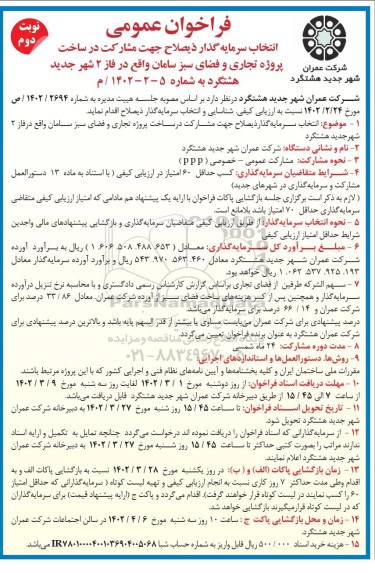 نوبت دوم
فراخوان عمومی
انتخاب سرمایه گذار ذیصلاح جهت مشارکت در ساخت
پروژه تجاری و فضای سبز سامان واقع در فاز ۲ شهر جدید
هشتگرد به شماره ۵-۲-۱۴۰۲/م
شرکت عمران
شهر جدید هشتگرد
شرکت عمران شهر جدید هشتگرد درنظر دارد بر اساس مصوبه جلسه هییت مدیره به شماره ۲۶۹۴/۱۴۰۲/ص
مورخ ۱۴۰۲/۲/۲۴ نسبت به ارزیابی کیفی، شناسایی و انتخاب سرمایه‌گذار ذیصلاح اقدام نماید.
۱- موضوع: انتخاب سرمایه‌گذار ذیصلاح جهت مشارکت درساخت پروژه تجاری و فضای سبز سامان واقع درفاز ۲
شهرجدید هشتگرد
۲- نام و نشانی دستگاه: شرکت عمران شهر جدید هشتگرد
۳- نحوه مشارکت: مشارکت عمومی – خصوصی (ppp)
۴- شرایط متقاضیان سرمایه‌گذاری: کسب حداقل ۶۰ امتیاز در ارزیابی کیفی (با استناد به ماده ۱۳ دستورالعمل
مشارکت و سرمایه‌گذاری در شهرهای جدید)
(لازم به ذکر است برگزاری جلسه بازگشایی پاکات فراخوان با ارایه یک پیشنهاد هم مادامی که امتیاز ارزیابی کیفی متقاضی
سرمایه‌گذاری حداقل ۷۰ امتیاز باشد بلامانع است.
۵- نحوه انتخاب سرمایه‌گذار: از طریق ارزیابی کیفی متقاضیان سرمایه‌گذاری و بازگشایی پیشنهادهای مالی واجدین
شرایط حداقل امتیاز ارزیابی کیفی
۶- مبلغ برآورد کل سرمایه‌گذاری: معادل (۱.۶۰۶.۵۰۸.۴۸۸.۶۵۳) ریال به برآورد آورده
شرکت عمران شهر جدید هشتگرد معادل ۵۴۳.۹۷۰.۵۶۳.۴۶۰ ریال و برآورد آورده سرمایه‌گذار معادل
۱.۰۶۲.۵۳۷.۹۲۵.۱۹۳ ریال خواهد بود.
۷- سهم الشرکه طرفین از فضای تجاری براساس گزارش کارشناس رسمی دادگستری و با محاسبه نرخ تنزیل درآورده
سرمایه‌گذار و همچنین پس از کسر هزینه‌های ساخت فضای سبز از آورده شرکت عمران، معادل ۳۳/۸۶ درصد برای
شرکت عمران و ۶۶/۱۴ درصد برای سرمایه‌گذار می‌باشد.
درصد پیشنهادی برای شرکت عمران می‌بایست مساوی یا بیشتر از قدر السهم پایه باشد و بالاترین درصد پیشنهادی برای
شرکت عمران شهر جدید هشتگرد به عنوان برنده فراخوان تعیین می‌گردد.
۸- مدت دوره مشارکت: ۲۴ ماه شمسی
۹- روش‌ها، دستورالعمل‌ها و استانداردهای اجرایی:
مقررات ملی ساختمان ایران و کلیه بخشنامه‌ها و آیین نامه‌های نظام فنی و اجرایی کشور که با این پروژه مرتبط باشند
۱۰- مهلت دریافت اسناد فراخوان: از روز دوشنبه مورخ ۱۴۰۲/۳/۱ لغایت روز سه شنبه مورخ ۱۴۰۲/۳/۹
از ساعت ۷ الی ۱۵/۴۵ از طریق دبیرخانه شرکت عمران شهر جدید هشتگرد قابل دریافت می‌باشد.
۱۱- تاریخ تحویل اسناد فراخوان: تا ساعت ۱۵/۴۵ روز شنبه مورخ ۱۴۰۲/۳/۲۷ به دبیرخانه شرکت عمران
شهر جدید هشتگرد تحویل شود.
۱۲- از سرمایه‌گذارانی که اسناد فراخوان را دریافت نموده اند درخواست می‌گردد چنانچه تمایل به تکمیل و ارایه اسناد
ندارند مراتب را بصورت کتبی حداکثر تا ساعت ۱۵/۴۵ روز شنبه مورخ ۱۴۰۲/۳/۲۷ به دبیرخانه شرکت عمران
شهر جدید هشتگرد اعلام نمایند.
۱۳- زمان بازگشایی پاکات (الف) و (ب): در روز یکشنبه مورخ ۱۴۰۲/۳/۲۸ نسبت به بازگشایی پاکات الف و به
اقدام وطی مدت حداکثر ۷ روز کاری نسبت به انجام ارزیابی کیفی و تهیه لیست کوتاه (سرمایه‌گذارانی که حداقل امتیاز
۶۰ را کسب نمایند در لیست کوتاه قرار خواهند گرفت). اقدام می‌گردد و پاکت ج (ارایه پیشنهاد قیمت) برای سرمایه‌گذاران
که در لیست کوتاه قرارمیگیرند بازگشایی خواهد شد.
۱۴- زمان و محل بازگشایی پاکت ج: ساعت ۱۰ روز سه شنبه مورخ ۱۴۰۲/۴/۶ در سالن اجتماعات شرکت عمران
شهر جدید هشتگرد.
۱۵- هزینه خرید اسناد ۵۰۰/۰۰۰ ریال قابل واریز به شماره حساب شبا می‌باشد.
ParsNamadData
۰۲۱-۸۸۳۴۹۶۷۰